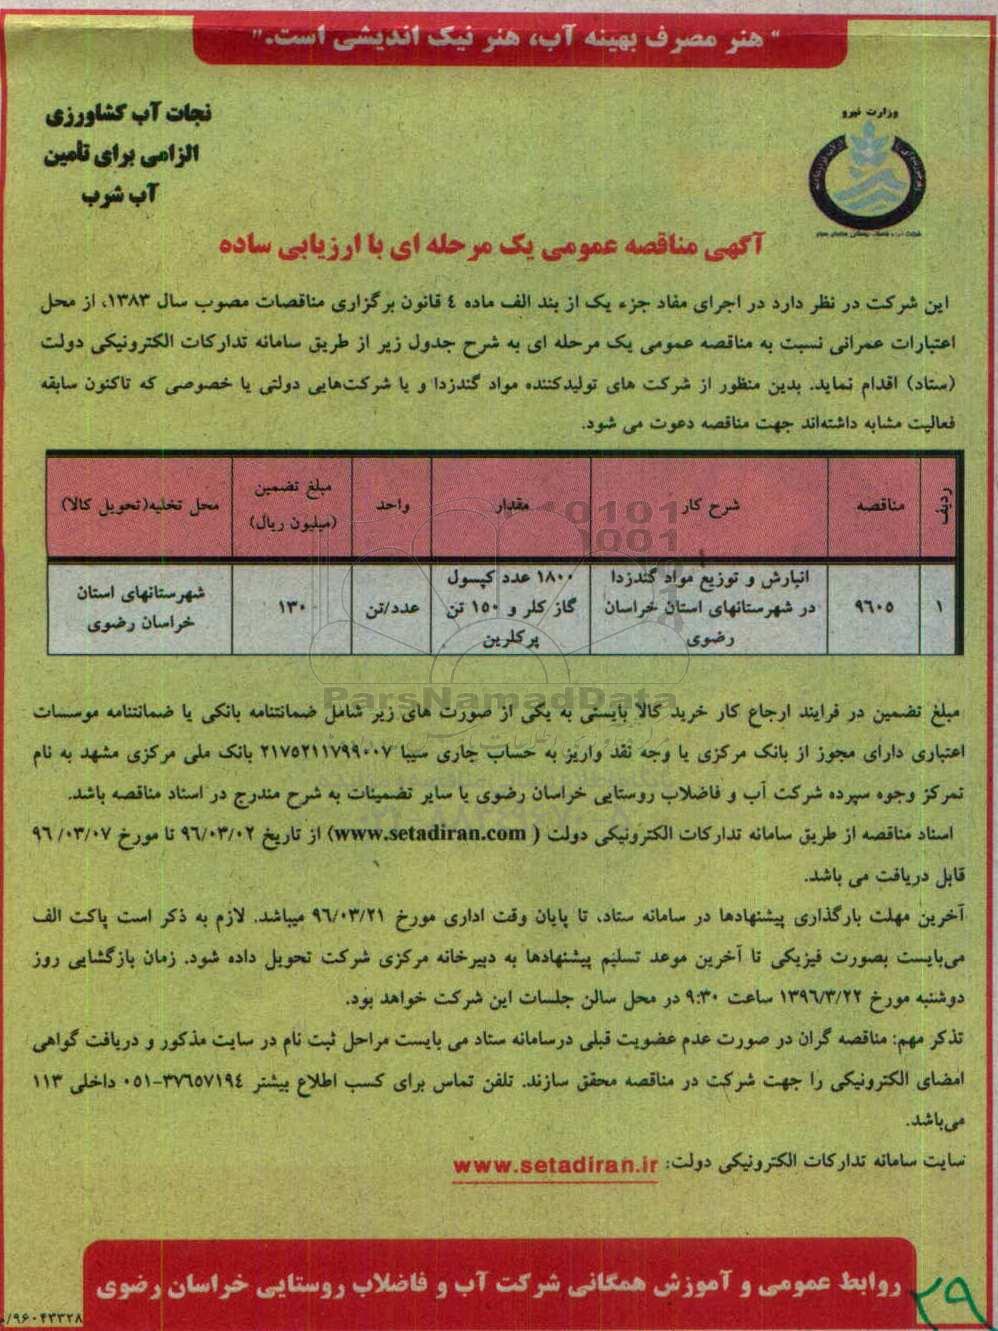 " هنر مصرف بهینه آب، هنر نیک اندیشی است."
وزارت نیرو
نجات آب کشاورزی
الزامی برای تأمین
آب شرب
آگهی مناقصه عمومی یک مرحله ای با ارزیابی ساده
این شرکت در نظر دارد در اجرای مفاد جزء یک از بند الف ماده ٤ قانون برگزاری مناقصات مصوب سال ۱۳۸۳، از محل
اعتبارات عمرانی نسبت به مناقصه عمومی یک مرحله ای به شرح جدول زیر از طریق سامانه تدارکات الکترونیکی دولت
(ستاد) اقدام نماید. بدین منظور از شرکت های تولیدکننده مواد گندزدا و یا شرکت‌هایی دولتی یا خصوصی که تاکنون سابقه
فعالیت مشابه داشته‌اند جهت مناقصه دعوت می شود.
ردیف مناقصه شرح کار مقدار واحد مبلغ تضمین (میلیون ریال) محل تخلیه(تحویل کالا)
۱ ۹٦۰۵ انبارش و توزیع مواد گندزدا در شهرستانهای استان خراسان رضوی ۱۸۰۰ عدد کپسول گاز کلر و ۱۵۰ تن پرکلرین عدد/تن ۱۳۰ شهرستانهای استان خراسان رضوی
ParsNamadData
مبلغ تضمین در فرایند ارجاع کار خرید کالا بایستی به یکی از صورت های زیر شامل ضمانتنامه بانکی یا ضمانتنامه موسسات
اعتباری دارای مجوز از بانک مرکزی یا وجه نقد واریز به حساب جاری سیبا ۲۱۷۵۲۱۱۷۹۹۰۰۷ بانک ملی مرکزی مشهد به نام
تمرکز وجوه سپرده شرکت آب و فاضلاب روستایی خراسان رضوی یا سایر تضمینات به شرح مندرج در اسناد مناقصه باشد.
اسناد مناقصه از طریق سامانه تدارکات الکترونیکی دولت ( www.setadiran.com) از تاریخ ۹٦/۰۳/۰۲ تا مورخ ۹٦/۰۳/۰۷
قابل دریافت می باشد.
آخرین مهلت بارگذاری پیشنهادها در سامانه ستاد، تا پایان وقت اداری مورخ ۹٦/۰۳/۲۱ میباشد. لازم به ذکر است پاکت الف
می‌بایست بصورت فیزیکی تا آخرین موعد تسلیم پیشنهادها به دبیرخانه مرکزی شرکت تحویل داده شود. زمان بازگشایی روز
دوشنبه مورخ ۱۳۹٦/۳/۲۲ ساعت ۹:۳۰ در محل سالن جلسات این شرکت خواهد بود.
تذکر مهم: مناقصه گران در صورت عدم عضویت قبلی درسامانه ستاد می بایست مراحل ثبت نام در سایت مذکور و دریافت گواهی
امضای الکترونیکی را جهت شرکت در مناقصه محقق سازند. تلفن تماس برای کسب اطلاع بیشتر ۰۵۱-۳۷٦۵۷۱۹٤ داخلی ۱۱۳
می‌باشد.
سایت سامانه تدارکات الکترونیکی دولت: www.setadiran.ir
روابط عمومی و آموزش همگانی شرکت آب و فاضلاب روستایی خراسان رضوی
۲۹
۹۶۰۴۳۳۲۸/